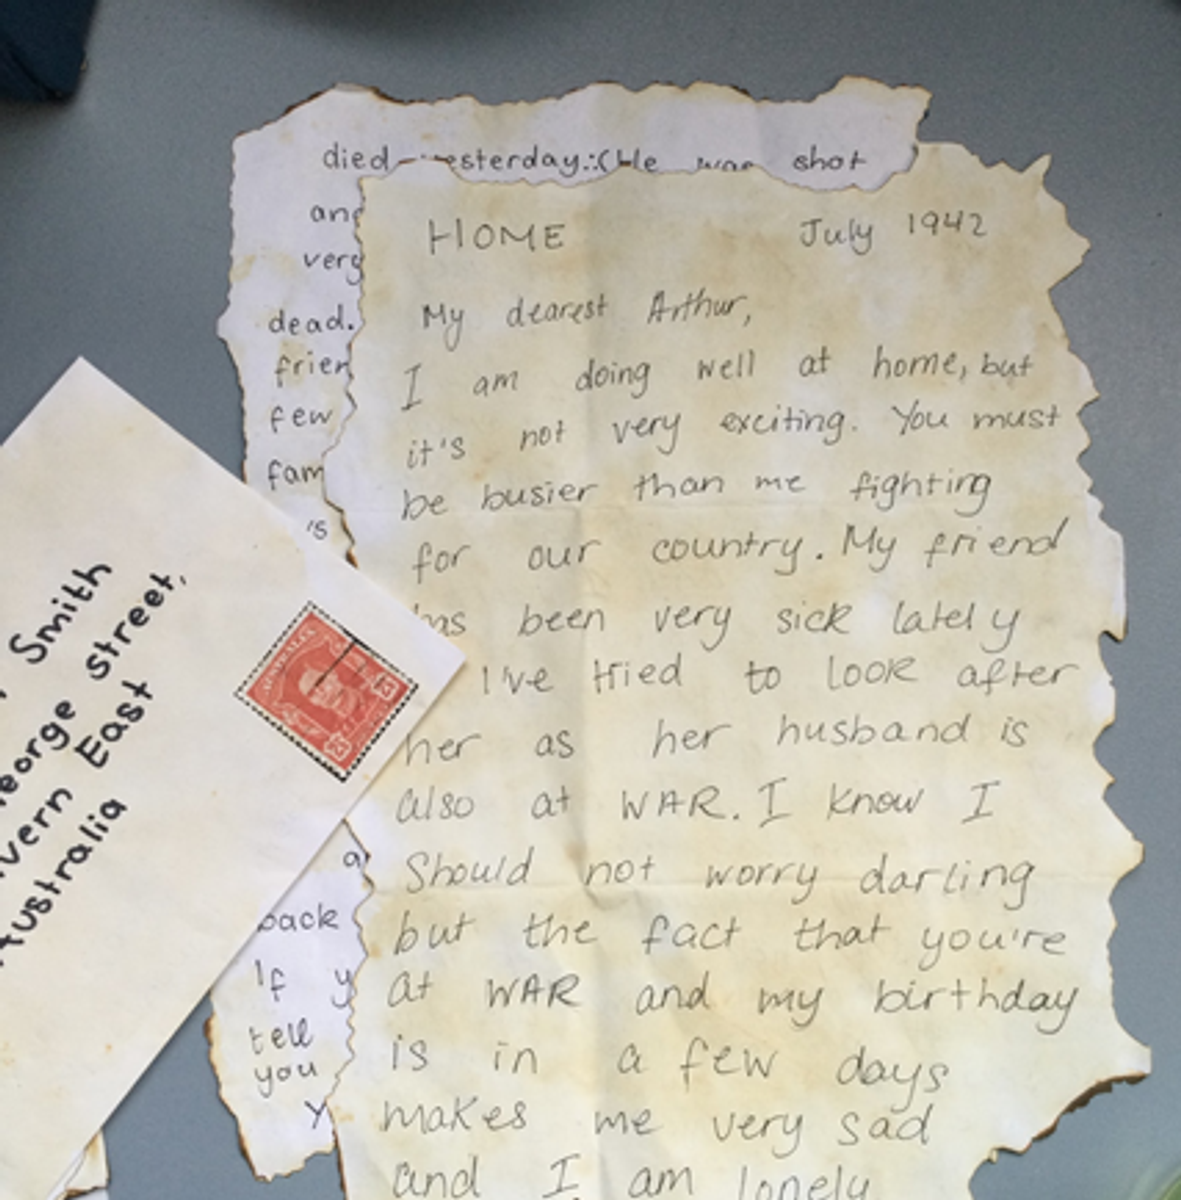 died yesterday:( He was shot
and
very
dead.
frien
few
fam
's
a
back
If y
tell
you
Y
HOME July 1942
My dearest Arthur,
I am doing well at home, but
it's not very exciting. You must
be busier than me fighting
for our country. My friend
has been very sick lately
I've tried to look after
her as her husband is
also at WAR. I know I
Should not worry darling
but the fact that you're
at WAR and my birthday
is in a few days
makes me very sad
and I am lonely
Smith
eorge Street,
vern East
Australia
AUSTRALIA